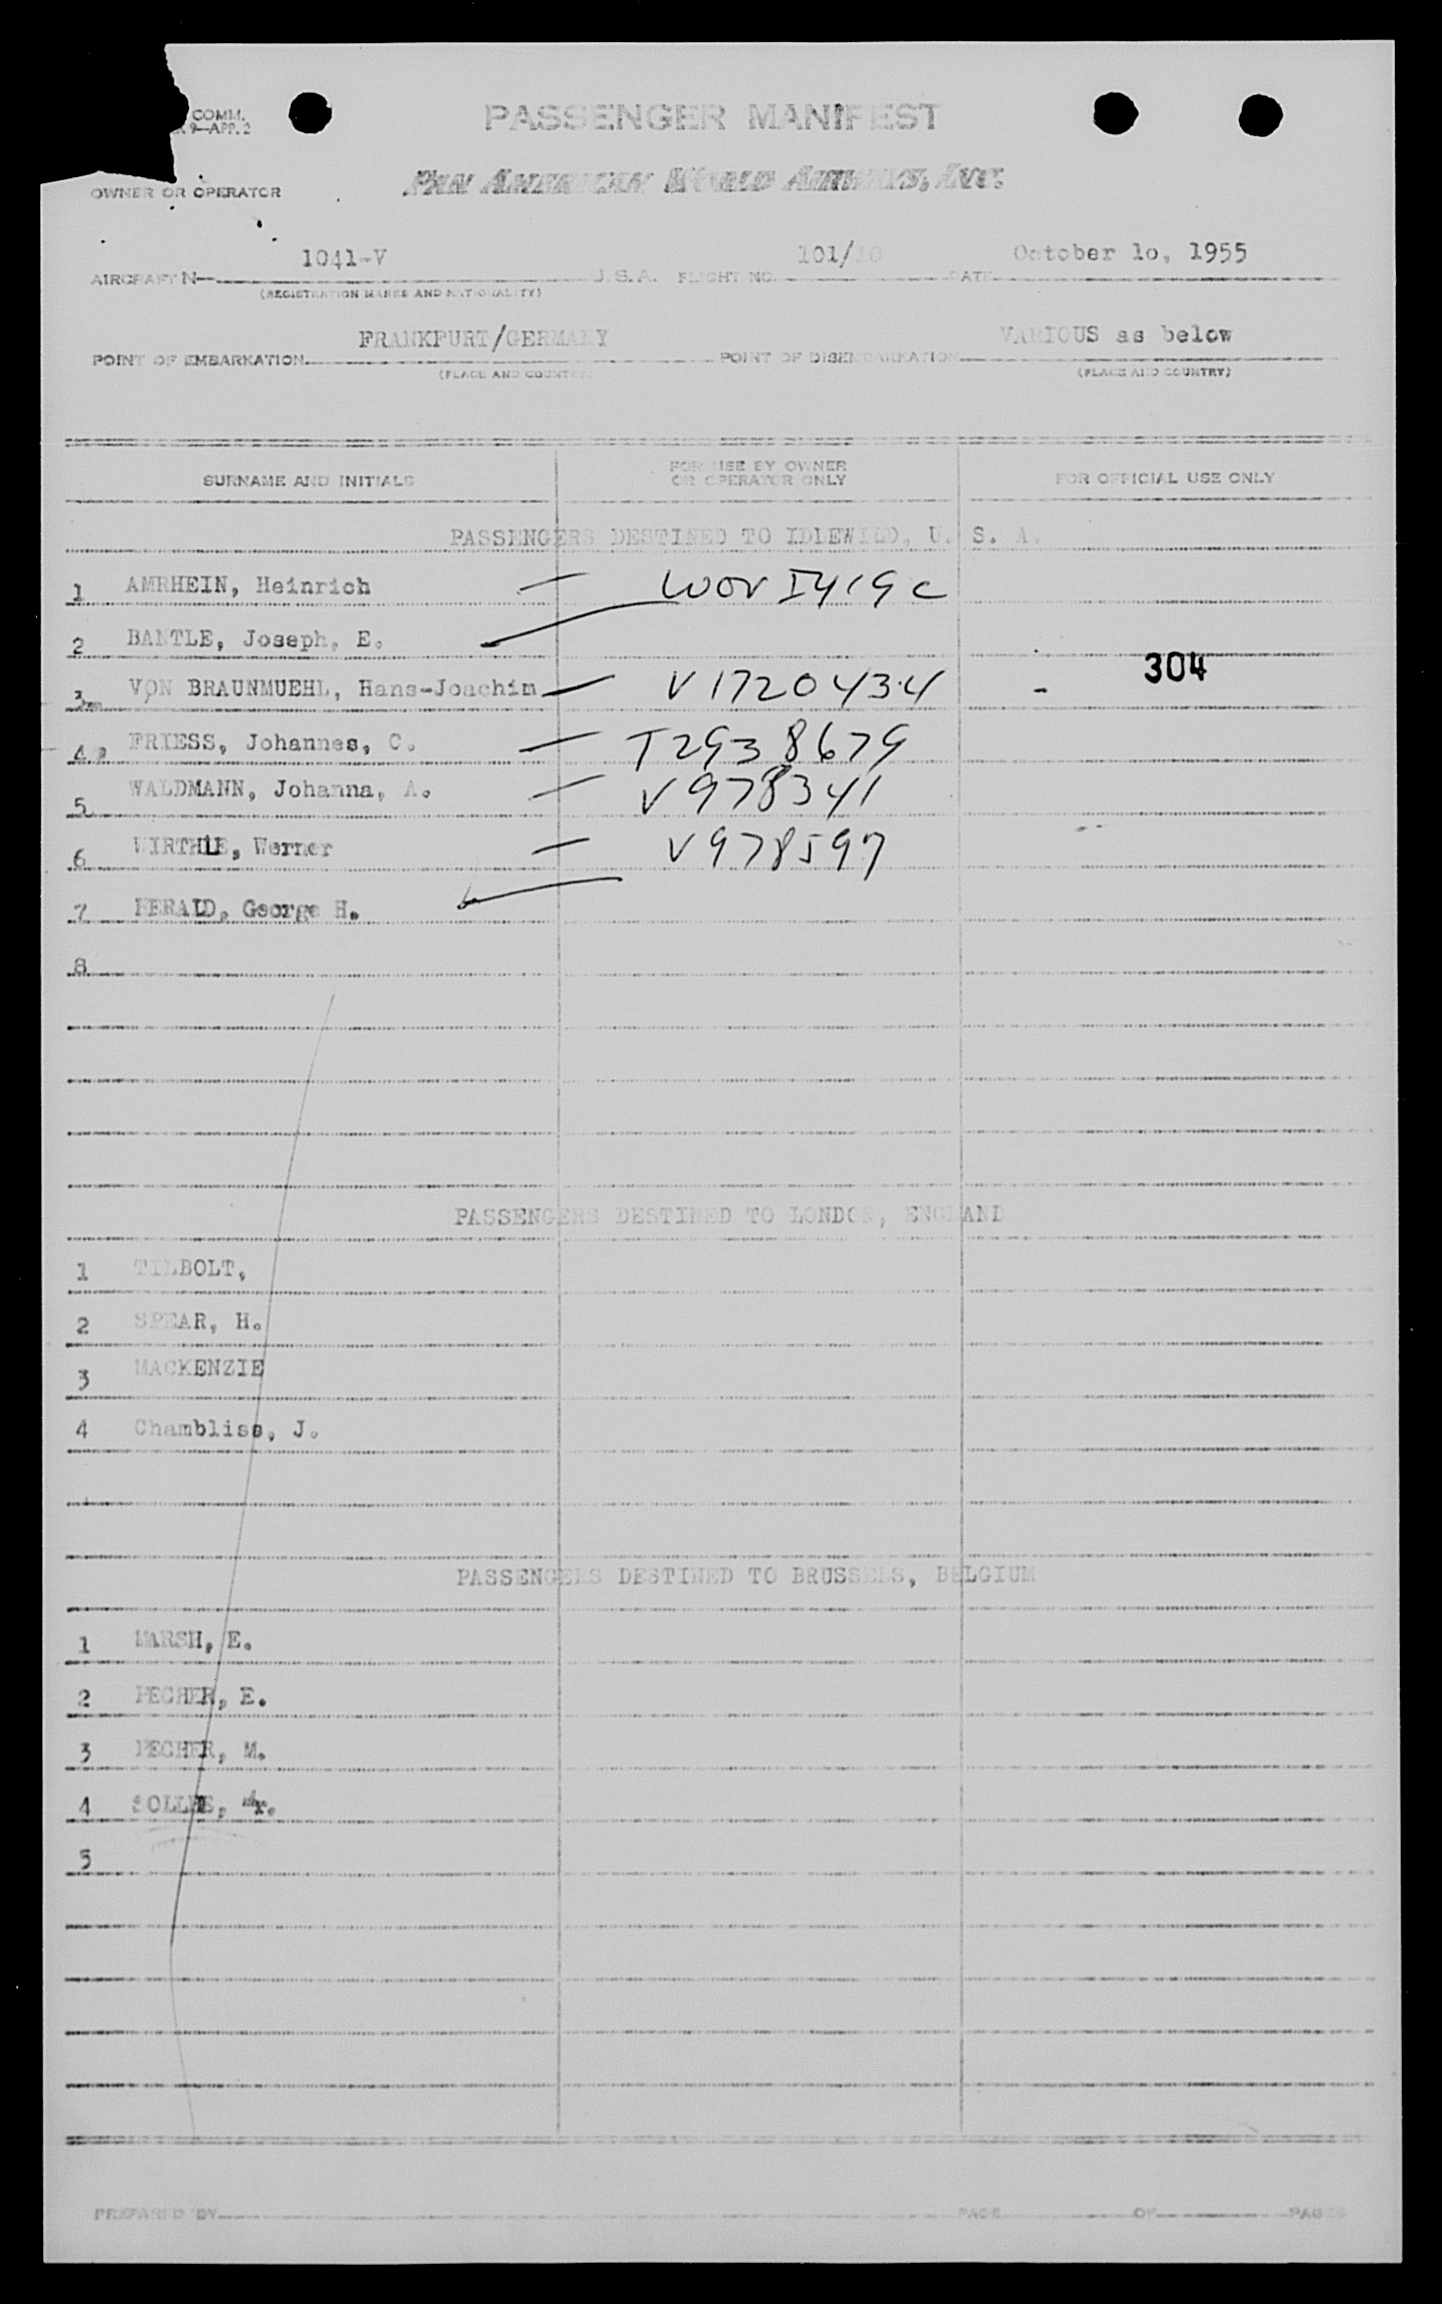 COMM.
9—APP. 2
PASSENGER MANIFEST
OWNER OR OPERATOR
PAN AMERICAN WORLD AIRWAYS, INC.
AIRCRAFT N— 1041-V U.S.A. FLIGHT NO. 101/10 DATE October 1o, 1955
(REGISTRATION MARKS AND NATIONALITY)
POINT OF EMBARKATION FRANKFURT/GERMANY POINT OF DISEMBARKATION VARIOUS as below
(PLACE AND COUNTRY) (PLACE AND COUNTRY)
SURNAME AND INITIALS FOR USE BY OWNER OR OPERATOR ONLY FOR OFFICIAL USE ONLY
PASSENGERS DESTINED TO IDLEWILD, U. S. A.
1 AMRHEIN, Heinrich — WOV I419c
2 BANTLE, Joseph, E.
304
3 VON BRAUNMUEHL, Hans-Joachim — V1720434
4 FRIESS, Johannes, C. — T2938679
5 WALDMANN, Johanna, A. — V978341
6 WIRTHLE, Werner — V978597
7 HERALD, George H.
8
PASSENGERS DESTINED TO LONDON, ENGLAND
1 TILBOLT,
2 SPEAR, H.
3 MACKENZIE
4 Chambliss, J.
PASSENGERS DESTINED TO BRUSSELS, BELGIUM
1 MARSH, E.
2 PECHER, E.
3 PECHER, M.
4
5
PREPARED BY PAGE OF PAGES